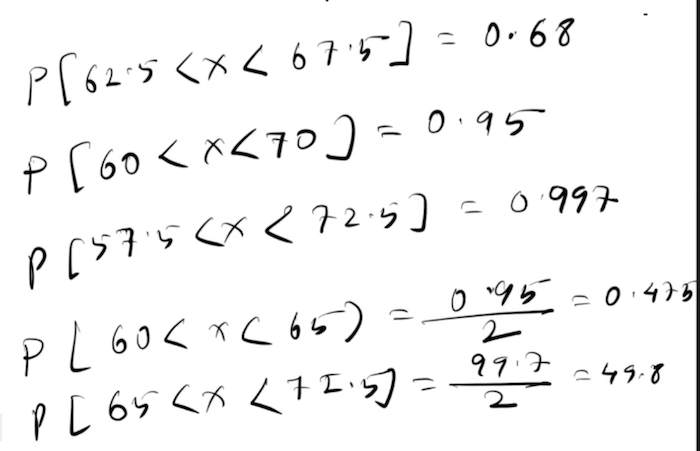 P[62.5 < x < 67.5] = 0.68
P[60 < x < 70] = 0.95
P[57.5 < x < 72.5] = 0.997
P[60 < x < 65) = 0.95/2 = 0.475
P[65 < x < 72.5] = 99.7/2 = 49.8